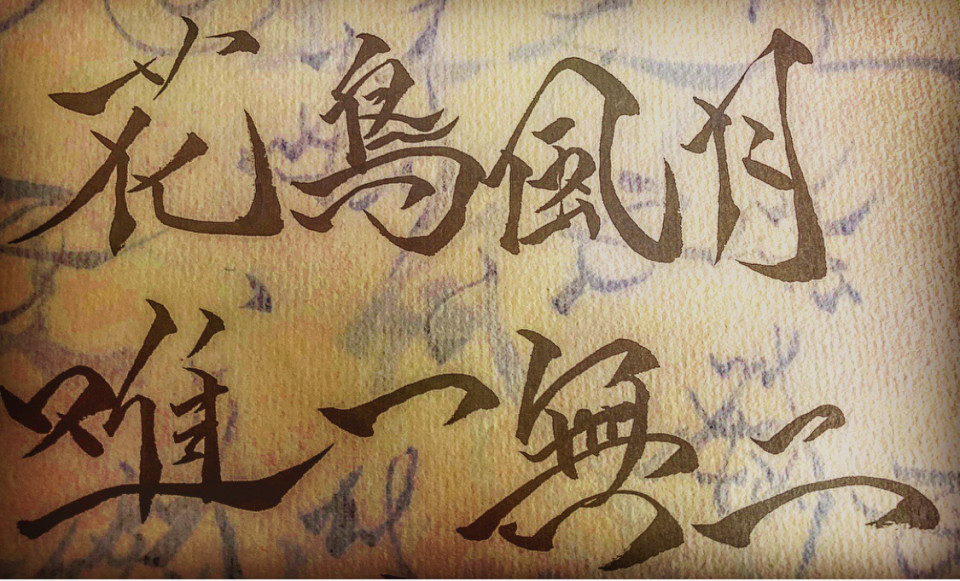 花鳥風月
唯一無二